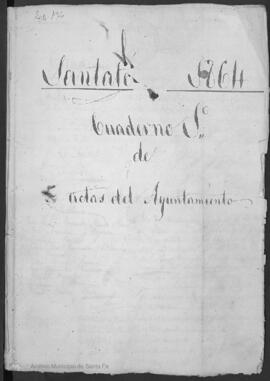 Santafé 1864
Cuaderno 1º
de
actas del Ayuntamiento
Archivo Municipal de Santa Fe